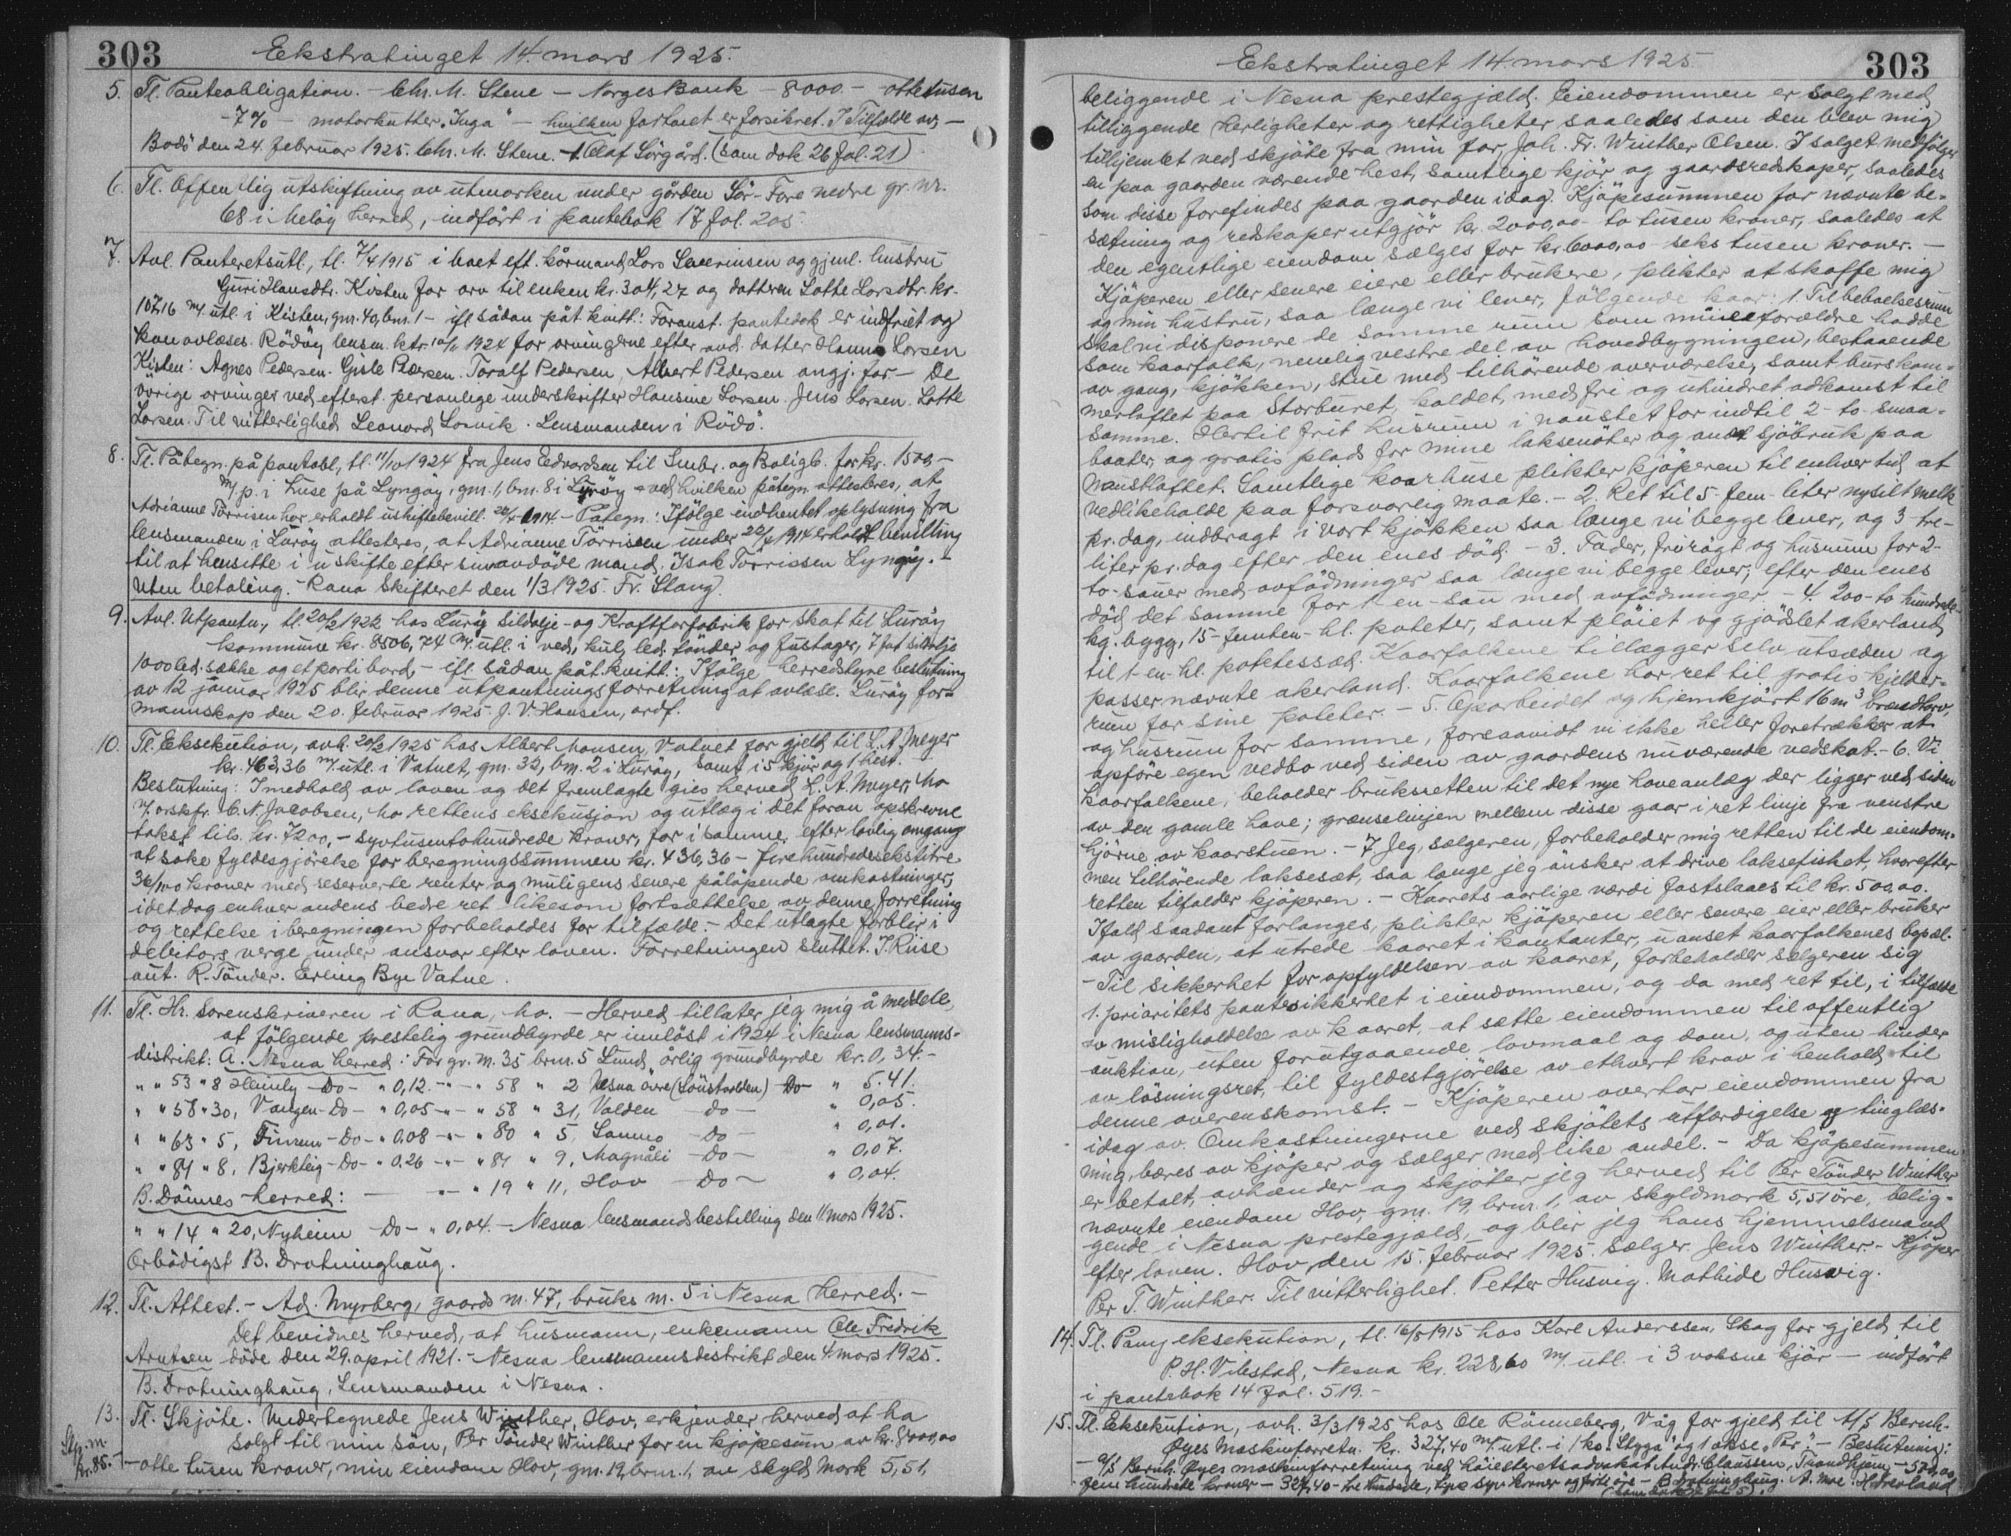 303
Ekstratinget 14. mars 1925.
5. Tl. Panteobligation. - Chr. M. Stene - Norges Bank - 8000.- ottetusen
- 7% - motorkutter "Inga" - hvilken fartøiet er forsikret. I Tilfælde av -
Bodö den 24. februar 1925. Chr. M. Stene. Olaf Sörgård. (Som dok 26 fol. 21)
6. Tl. Offentlig utskiftning av utmarken under gården Sör-Fore nedre gr. nr.
68 i Melöy herred, indført i pantebok 17 fol. 205
7. Avl. Panteretsutl., tl. 7/4 1915 i boet eft. kårmand Lars Severinsen og gjenl. hustru
Guri Hansdtr. Kisten for arv til enken kr. 304,27 og datteren Lotte Larsdtr. kr.
107,16 m/ utl. i Kisten, gnr. 40, bnr. 1 - ifl. sådan påt. kvitt: Foranst. pantedok er indfriet og
kan avlæses. Rödöy lensm. ktr. 10/11 1924 for arvingerne efter avd. datter Hanna Larsen
Kisten: Agnes Pedersen. Gisle Pedersen. Toralf Pedersen, Albert Pedersen angj. far - De
övrige arvinger ved efterst. personlige underskrifter Hansine Larsen. Jens Larsen. Lotte
Larsen. Til vitterlighed Leonard Losvik. Lensmanden i Rödö.
8. Tl. Påtegn. på pantobl., tl. 11/10 1924 fra Jens Edvardsen til Småbr. og Boligb. for kr. 1500,-
m/ p. i huse på Lyngöy, gnr. 1, bnr. 8 i Luröy - ved hvilken påtegn. attesteres, at
Adrianne Törrisen har erholdt uskiftebevill. 22/4 1914 - Påtegn: Ifölge indhentet oplysning fra
lensmanden i Luröy attesteres, at Adrianne Törrissen under 22/4 1914 erholdt bevilling
til at hensitte i uskifte efter sin avdöde mand Isak Törrissen Lyngöy. -
Uten betaling. Rana Skifteret den 1/3 1925. Fr. Stang.
9. Avl. Utpantn., tl. 20/2 1922 hos Luröy Sildolje- og Kraftforfabrik for skat til Luröy
kommune kr. 8506,74 m/ utl. i ved, kul, led. tönder og fustager, 7 fat sildolje
1000 led. sække og et parti bord, - ifl. sådan påt. kvitt: Ifölge herredstyre beslutning
av 12 januar 1925 blir denne utpantningsforretning at avlæse. Luröy for-
mannskap den 20. februar 1925. J. V. Hansen, ordf.
10. Tl. Eksekution, avh. 20/2 1925 hos Albert Monsen, Vatnet for gjeld til L. A. Meyer
kr. 463,36 m/ utl. i Vatnet, gnr. 32, bnr. 2 i Luröy, samt i 5 kjör og 1 hest.
Beslutning: I medhold av loven og det fremlagte gies herved L. A. Meyer, Mo
m/ orskfr. C. N. Jacobsen, Mo rettens eksekusjon og utlæg i det foran opskrevne
takst tils. kr. 7200,- syvtusentohundrede kroner, for i samme efter lovlig omgang
at söke fyldesgjörelse for beregningssummen kr. 436,36 - firehundredesekstitre
36/100 kroner med reserverte renter og muligens senere påløpende omkostninger,
idet dog enhver andens bedre ret likesom fortsættelse av denne forretning
og rettelse i beregningen forbeholdes for tilfælde. - Det utlagte forblir i
debitors verge under ansvar efter loven. Forretningen sluttet. J. Riise
aut. R. Tönder. Erling Bye Vatne.
11. Tl. Hr. Sorenskriveren i Rana, Mo. - Herved tillater jeg mig å meddele,
at fölgende prestelig grundbyrde er innlöst i 1924 i Nesna lensmanns-
distrikt: A. Nesna herred: For gr. nr. 35 brnr. 5 Lund, årlig grundbyrde kr. 0,34.-
" " 53 " 8 Heimly - Do - " 0,12. - " - " 58 " 2 Nesna övre (Löiistarlden) Do - " 5.41.
" " 58 " 30, Vangen - Do - " 0,05 - " - " 58 " 31, Valden - do - " 0,05.
" " 63 " 5, - Do - " 0.08 - " - " 80 " 5, Sanmo - Do - " 0,01.
" " 84 " 8, Bjerkteig - Do - " 0.26 - " - " 84 " 9, Magnåli - Do - " 0,07.
B. Dönnes herred: - " - " 19 " 11, Hov - Do - " 0,04.
" " 14 " 20, Nyheim - Do - " 0,04. - Nesna lensmandsbestilling den 11. mars 1925.
Ærbödigst B. Drotninghaug.
12. Tl. Attest. - Ad. Myrberg, gaards nr. 47, bruks nr. 5 i Nesna herred. -
Det bevidnes herved, at husmann, enkemann Ole Fredrik
Arntsen döde den 29. april 1921. - Nesna lensmannsdistrikt den 4. mars 1925.
B. Drotninghaug, Lensmanden i Nesna.
13. Tl. Skjöte. Undertegnede Jens Winther, Hov, erkjender herved at ha
Stp. m.
kr. 85.-
solgt til min sön, Per Tönder Winther for en kjöpesum av kr. 8000,00
- otte tusen kroner, min eiendom Hov, gnr. 19, brnr. 1, av skyld mark 5,51,
303
Ekstratinget 14. mars 1925
beliggende i Nesna prestegjæld. Eiendommen er solgt med
tilliggende herligheter og rettigheter saaledes som den blev mig
tilhjemlet ved skjöte fra min far, Joh. Fr. Winther Olsen. I salget medfölger
en paa gaarden værende hest, samtlige kjör og gaardsredskaper, saaledes
som disse forefindes paa gaarden idag. Kjöpesummen for nævnte be-
sætning og redskaper utgjör kr. 2000,00 to tusen kroner, saaledes at
den egentlige eiendom sælges for kr. 6000,00 seks tusen kroner. -
Kjöperen eller senere eiere eller brukere, plikter at skaffe mig
og min hustru, saa længe vi lever, fölgende kaar: 1. Til beboelsesrum
skal vi disponere de samme rum som mine forældre hadde
som kaarfolk, nemlig vestre del av hovedbygningen, bestaaende
av gang, kjökken, stue med tilhörende overværelse, samt burskam-
merloftet paa Storburet kaldet, med fri og uhindret adkomst til
samme. Hertil frit husrum i naustet for indtil 2 - to smaa-
baater, og gratis plads for mine laksenöter og andet sjöbruk paa
naustloftet. Samtlige kaarhuse plikter kjöperen til enhver tid at
vedlikeholde paa forsvarlig maate. - 2. Ret til 5 - fem - liter nysilt melk
pr. dag, indbragt i vort kjökken saa længe vi begge lever, og 3 tre-
liter pr. dag efter den enes död. - 3. Foder, frirögt og husrum for 2-
to - sauer med avfödninger saa længe vi begge lever, efter den enes
död det samme for 1 - en - sau med avfödninger. - 4. 200 - to hundrede-
kg. bygg, 15 - femten - hl. poteter, samt plöiet og gjödslet akerland
til 1 - en - hl. potetessæd. Kaarfolkene tillægger selv utsæden og
passer nævnte akerland. Kaarfolkene har ret til gratis kjelder-
rum for sine poteter. - 5. Oparbeidet og hjemkjört 16 m³ brændtorv,
og husrum for samme, forsaavidt vi ikke heller foretrækker at
opföre egen vedbo ved siden av gaardens nuværende vedskot. - 6. Vi
kaarfolkene, beholder bruksretten til det nye haveanlæg der ligger ved siden
av den gamle have; grænselinjen mellem disse gaar i ret linje fra venstre
hjörne av kaarstuen. - 7 Jeg, sælgeren, forbeholder mig retten til de eiendom-
men tilhörende laksesæt, saa lange jeg önsker at drive laksefisket, hvorefter
retten tilfalder kjöperen. - Kaarets aarlige værdi fastslaaes til kr. 500,00.
Ifald saadant forlanges, plikter kjöperen eller senere eier eller bruker
av gaarden, at utrede kaaret i kontanter, uanset kaarfolkenes bopæl.
- Til sikkerhet for opfyldelsen av kaaret, forbeholder sælgeren sig
1. prioritets pantesikkerhet i eiendommen, og da med ret til, i tilfælde
av misligholdelse av kaaret, at sætte eiendommen til offentlig
auktion, uten forutgaaende lovmaal og dom, og uten hinder
av lösningsret, til fyldestgjörelse av ethvert krav i henhold til
denne overenskomst. - Kjöperen overtar eiendommen fra
idag av. Omkostningerne ved skjötets utfærdigelse og tinglæs-
ning, bæres av kjöper og sælger med like andel. - Da kjöpesummen
er betalt, avhænder og skjöter jeg herved til Per Tönder Winther
nævnte eiendom Hov, gnr. 19, brnr. 1, av skyldmark 5,51 öre, belig-
gende i Nesna prestegjæld, og blir jeg hans hjemmelsmand
efter loven. Hov, den 15. februar 1925. Sælger: Jens Winther. - Kjöper
Per T. Winther. Til vitterlighet. Petter Husvig. Mathide Husvig.
14. Tl. Panteksekution, tl. 16/8 1915 hos Karl Anderssen, Skog for gjeld til
P. H. Vibstad, Nesna kr. 228,60 m/ utl. i 3 voksne kjör - indfört
i pantebok 14 fol. 519.-
15. Tl. Eksekution, avh. 3/3 1925 hos Ole Rönneberg, Våg for gjeld til A/S Bernh.
Øyes Maskinforretn. kr. 327,40 m/ utl. i 1 ko "Stygg" og 1 okse "Per" - Beslutning:
- A/S Bernh. Øyes maskinforretning ved höiesteretsadvokat Andr. Claussen, Trondhjem - 500,00
fem hundrede kroner - 327,40 - tre hundrede, tjue syv kroner og förti öre - B. Drotninghaug. A. Moe.